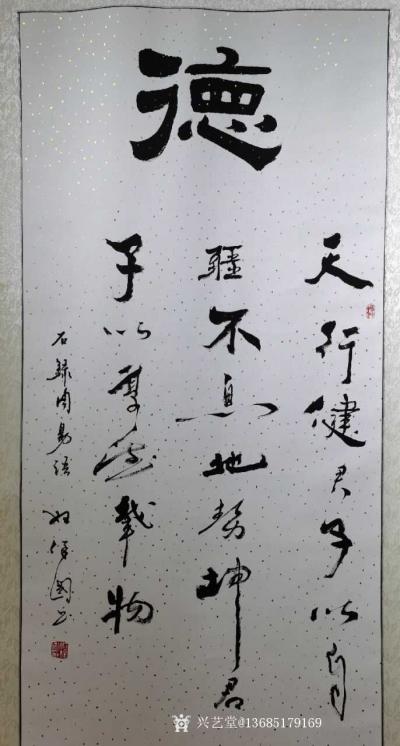 德
天行健君子以自
疆不息地势坤君
子以厚德載物
右録周易语
国书
兴艺堂@13685179169